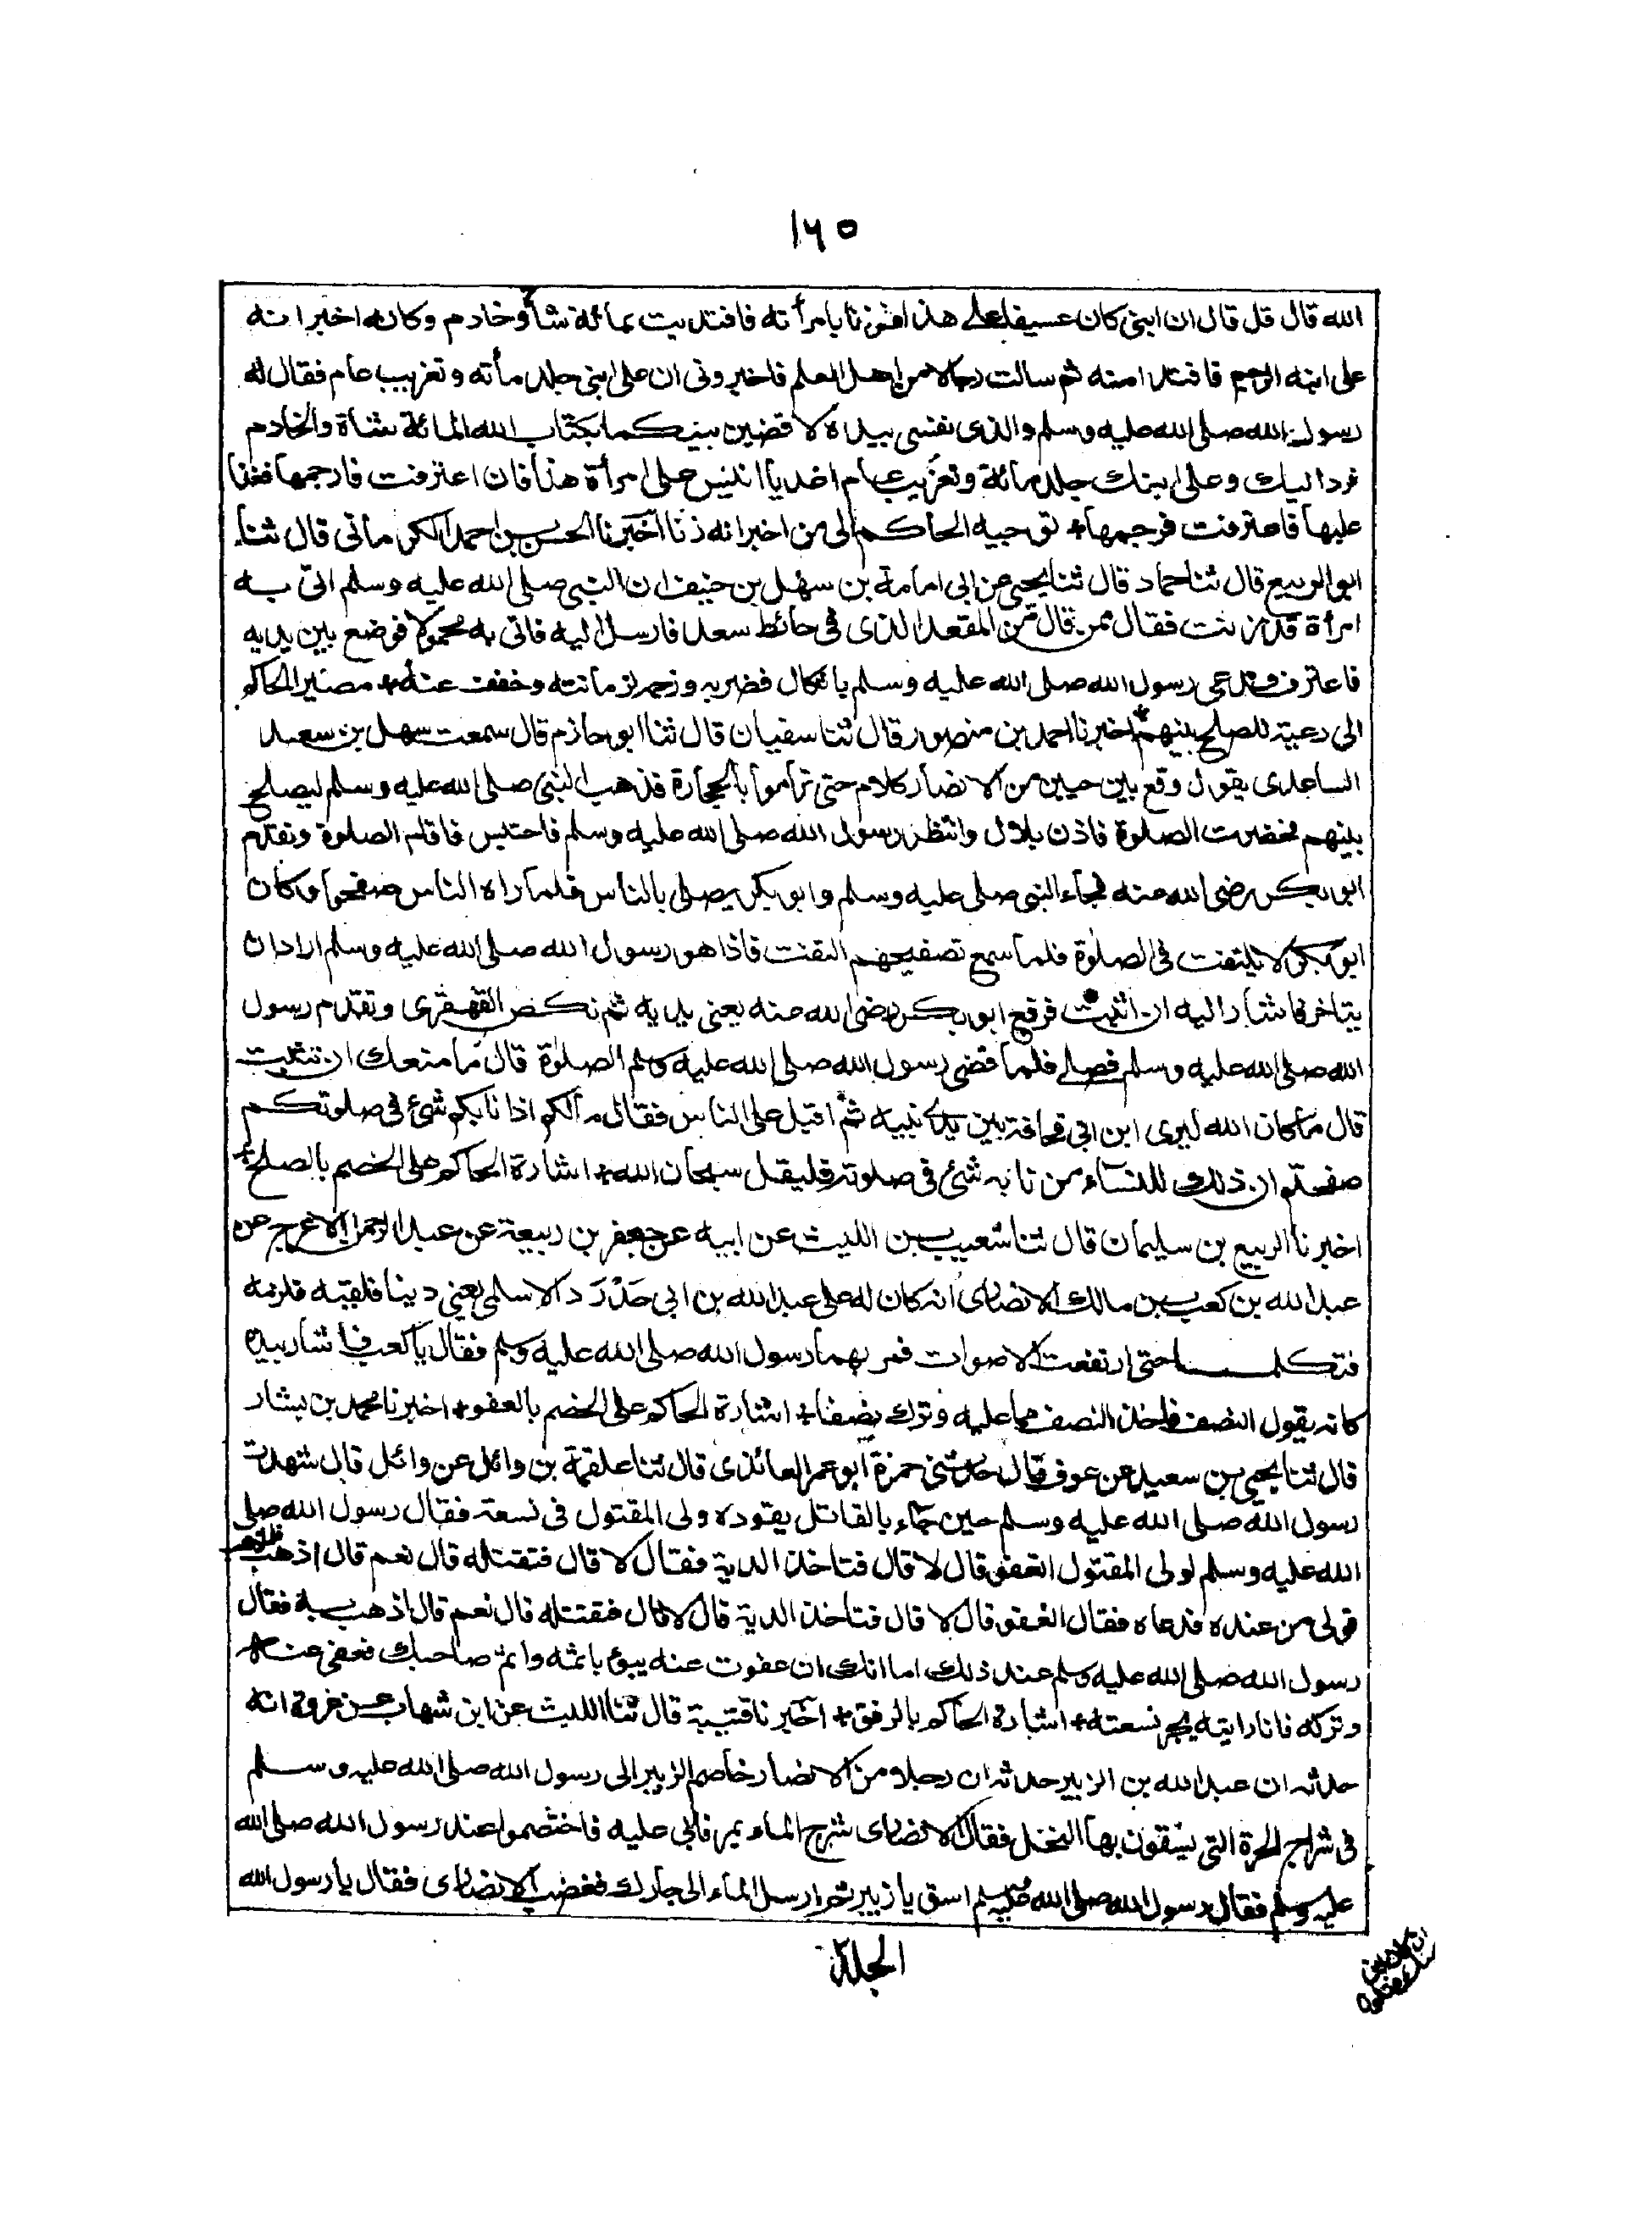 ١٦٥
الله قال قل قال ان ابنى كان عسيفا على هذا فزنا بامرأته فافتديت بمائة شاة وخادم وكانه اخبر انه
على ابنه الرجم فافتدا منه ثم سالت رجالا من اهل العلم فاخبرونى ان على ابنى جلد مأته وتغريب عام فقال له
رسول الله صلى الله عليه وسلم والذى نفسى بيده لاقضين بينكما بكتاب الله المائة شاة والخادم
فردا ليك وعلى ابنك جلد مائة وتغريب عام اغد يا انيس على امرأة هذا فان اعترفت فارجمها فغدا
عليها فاعترفت فرجمها * توجيه الحاكم الى من اخبر انه زنا اخبرنا الحسن بن احمد الكرمانى قال ثنا
ابو الربيع قال ثنا حماد قال ثنا يحيى عن ابى امامة بن سهل بن حنيف ان النبى صلى الله عليه وسلم اتى به
امرأة قد زنت فقال ممن قال من المقعد الذى فى حائط سعد فارسل اليه فاتى به محمولا فوضع بين يديه
فاعترف فدعى رسول الله صلى الله عليه وسلم باثكال فضربه ورحمه لزمانته وخفف عنه * مصير الحاكم
الى رعيته للصلح بينهم اخبرنا احمد بن منصور قال ثنا سفيان قال ثنا ابو حازم قال سمعت سهل بن سعد
الساعدى يقول وقع بين حيين من الانصار كلام حتى تراموا بالحجارة فذهب النبى صلى الله عليه وسلم ليصلح
بينهم فحضرت الصلوة فاذن بلال وانتظر رسول الله صلى الله عليه وسلم فاحتبس فاقام الصلوة وتقدم
ابو بكر رضى الله عنه فجاء النبى صلى عليه وسلم وابو بكر يصلى بالناس فلما راه الناس صفحوا وكان
ابو بكر لا يلتفت فى الصلوة فلما سمع تصفيحهم التفت فاذا هو رسول الله صلى الله عليه وسلم اراد ان
يتاخر فاشار اليه ان اثبت فرفع ابو بكر رضى الله عنه يعنى يديه ثم نكص القهقرى وتقدم رسول
الله صلى الله عليه وسلم فصلى فلما قضى رسول الله صلى الله عليه وسلم الصلوة قال ما منعك ان تثبت
قال ما كان الله ليرى ابن ابى قحافة بين يدى نبيه ثم اقبل على الناس فقال مالكم اذا نابكم شئ فى صلوتكم
صفحتم ان ذلك للنساء من نابه شئ فى صلوته فليقل سبحان الله * اشارة الحاكم على الخصم بالصلح *
اخبرنا الربيع بن سليمان قال ثنا شعيب بن الليث عن ابيه عن جعفر بن ربيعة عن عبد الرحمن الاعرج عن
عبد الله بن كعب بن مالك الانصارى انه كان له على عبد الله بن ابى حدرد الاسلمى يعنى دينا فلقيه فلزمه
فتكلما حتى ارتفعت الاصوات فمر بهما رسول الله صلى الله عليه وسلم فقال يا كعب فاشار بيده
كانه يقول النصف فاخذ النصف مما عليه وترك نصفا * اشارة الحاكم على الخصم بالعفو * اخبرنا محمد بن بشار
قال ثنا يحيى بن سعيد عن عوف قال حدثنى حمزة ابو عمر العائذى قال ثنا علقمة بن وائل عن وائل قال شهدت
رسول الله صلى الله عليه وسلم حين جاء بالقاتل يقوده ولى المقتول فى نسعة فقال رسول الله صلى
الله عليه وسلم لولى المقتول اتعفو قال لا قال فتاخذ الدية فقال لا قال فتقتله قال نعم قال اذهب
فولى من عنده فدعاه فقال اتعفو قال لا قال فتاخذ الدية قال لا قال فتقتله قال نعم قال اذهب به فقال
رسول الله صلى الله عليه وسلم عند ذلك اما انك ان عفوت عنه يبؤ باثمه واثم صاحبك فعفى عنه
وتركه فانا رايته يجر نسعته * اشارة الحاكم بالرفق * اخبرنا قتيبة قال ثنا الليث عن ابن شهاب عن عروة انه
حدثه ان عبد الله بن الزبير حدثه ان رجلا من الانصار خاصم الزبير الى رسول الله صلى الله عليه وسلم
فى شراج الحرة التى يسقون بها النخل فقال الانصارى شرج الماء يمر فابى عليه فاختصموا عند رسول الله صلى الله
عليه وسلم فقال رسول الله صلى الله عليه وسلم اسق يا زبير ثم ارسل الماء الى جارك فغضب الانصارى فقال يا رسول الله